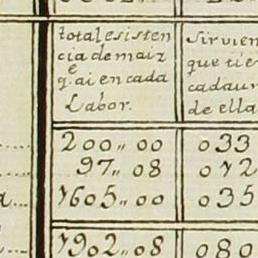 total esisten
cia de maiz
q.e ai en cada
Labor.
Sirvien
que tie
cadaun
de ella
200,, 00
033
97,, 08
072
7605,, 00
035
7902,, 08
080